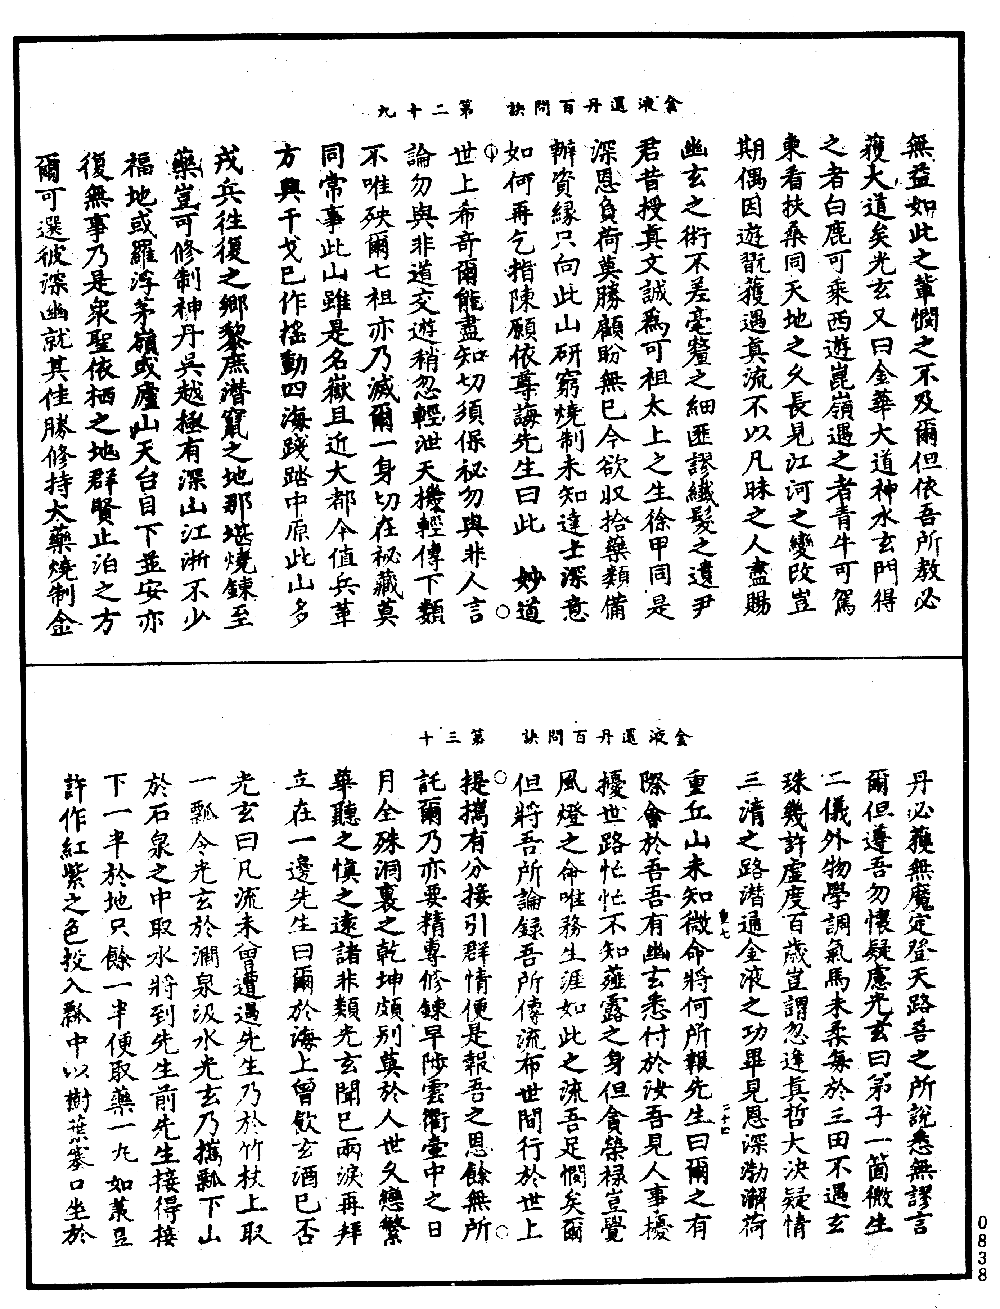 金液還丹百問訣　第二十九
無益如此之輩憫之不及爾但依吾所教必
獲大道矣光玄又曰金華大道神水玄門得
之者白鹿可乘西遊崑嶺遇之者青牛可駕
東看扶桑同天地之久長見江河之變改豈
期偶因遊翫獲遇真流不以凡昧之人盡賜
幽玄之術不差毫釐之細匪謬纖髮之遺尹
君昔授真文誠為可祖太上之生徐甲同是
深恩負荷莫勝顧盼無已今欲収拾藥類備
辦資緣只向此山研窮燒制未知達士深意
如何再乞指陳願依尊誨先生曰此　妙道
世上希奇爾能盡知切須保祕勿與非人言
論勿與非道交遊稍忽輕泄天機輕傳下類
不唯殃爾七祖亦乃滅爾一身切在祕藏莫
同常事此山雖是名嶽且近大都今值兵革
方興干戈已作搖動四海踐踏中原此山多
戎兵往復之鄉黎庶潛竄之地那堪燒鍊至
藥豈可修制神丹吳越極有深山江浙不少
福地或羅浮茅嶺或廬山天台目下並安亦
復無事乃是衆聖依栖之地群賢止泊之方
爾可選彼深幽就其佳勝修持大藥燒制金
金液還丹百問訣　第三十
丹必獲無魔定登天路吾之所說悉無謬言
爾但遵吾勿懷疑慮光玄曰弟子一箇微生
二儀外物學調氣馬未柔每於三田不遇玄
珠幾許虛度百歲豈謂忽逢真哲大決疑情
三清之路潛通金液之功畢見恩深渤澥荷
重丘山未知微命將何所報先生曰爾之有
際會於吾吾有幽玄悉付於汝吾見人事擾
擾世路忙忙不知薤露之身但貪榮祿豈覺
風燈之命唯務生涯如此之流吾足憫矣爾
但將吾所論録吾所傳流布世間行於世上
提攜有分接引群情便是報吾之恩餘無所
託爾乃亦要精專修鍊早陟雲衢壺中之日
月全殊洞裏之乾坤頗別莫於人世久戀繁
華聽之慎之遠諸非類光玄聞已兩淚再拜
立在一邊先生曰爾於海上曾飲玄酒已否
光玄曰凡流未曾遭遇先生乃於竹杖上取
一瓢令光玄於澗泉汲水光玄乃攜瓢下山
於石泉之中取水將到先生前先生接得接
下一半於地只餘一半便取藥一丸如菉豆
許作紅紫之色投入瓢中以樹葉塞口坐於
0838